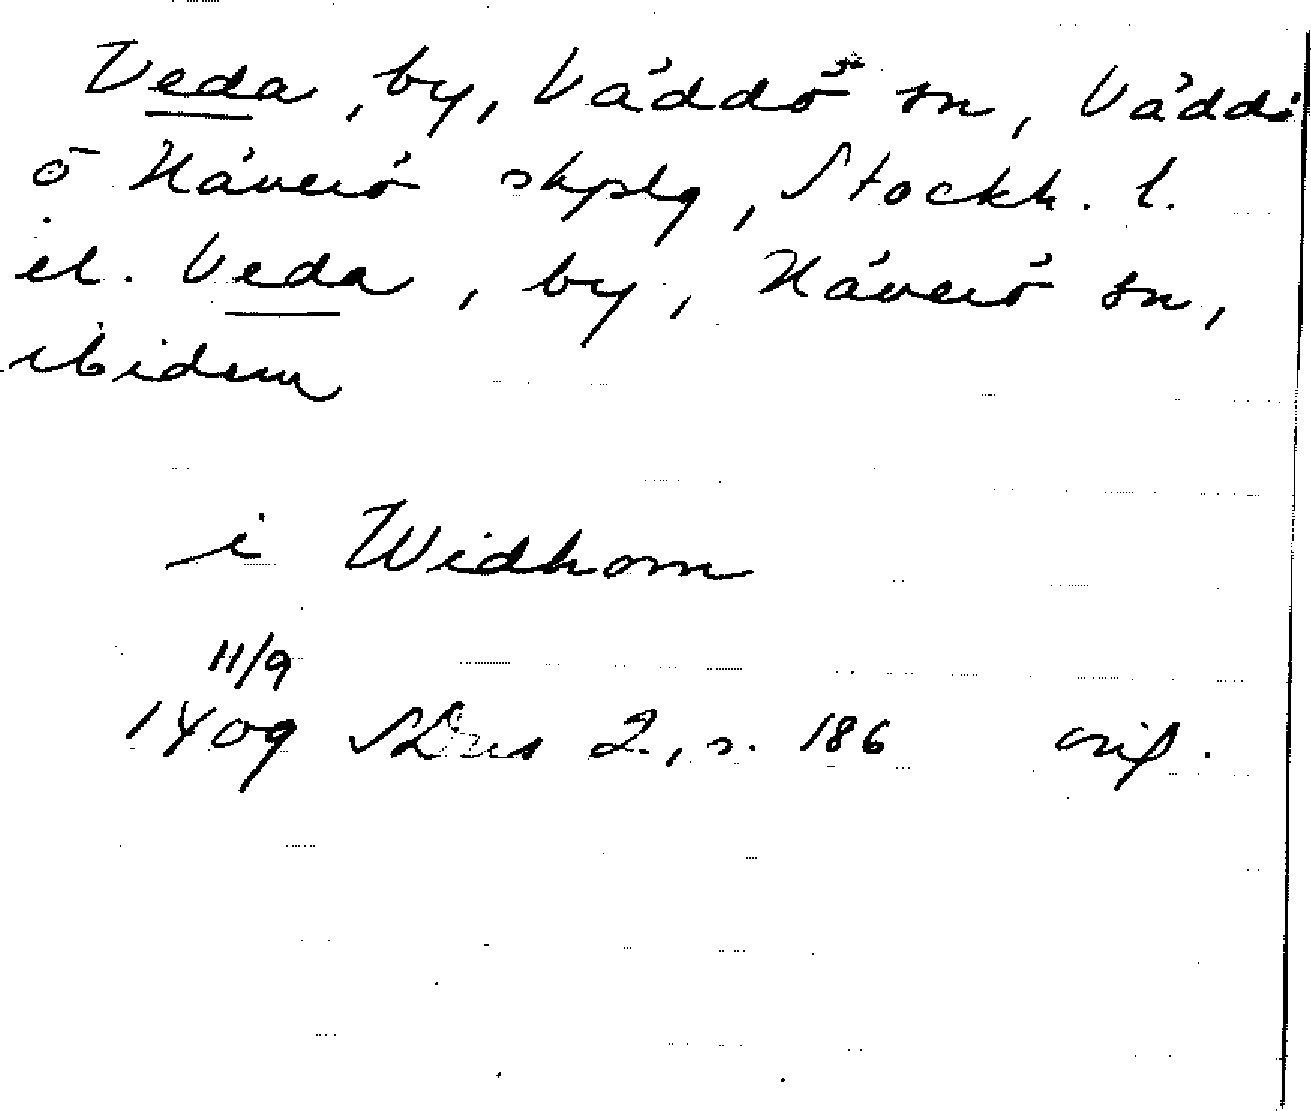 Veda, by, Väddö sn, Väddö
o Häverö skplg, Stockh. l.
el. Veda, by, Häverö sn,
ibidem
i Widhom
11/9
1409 SDns 2, s. 186 orig.